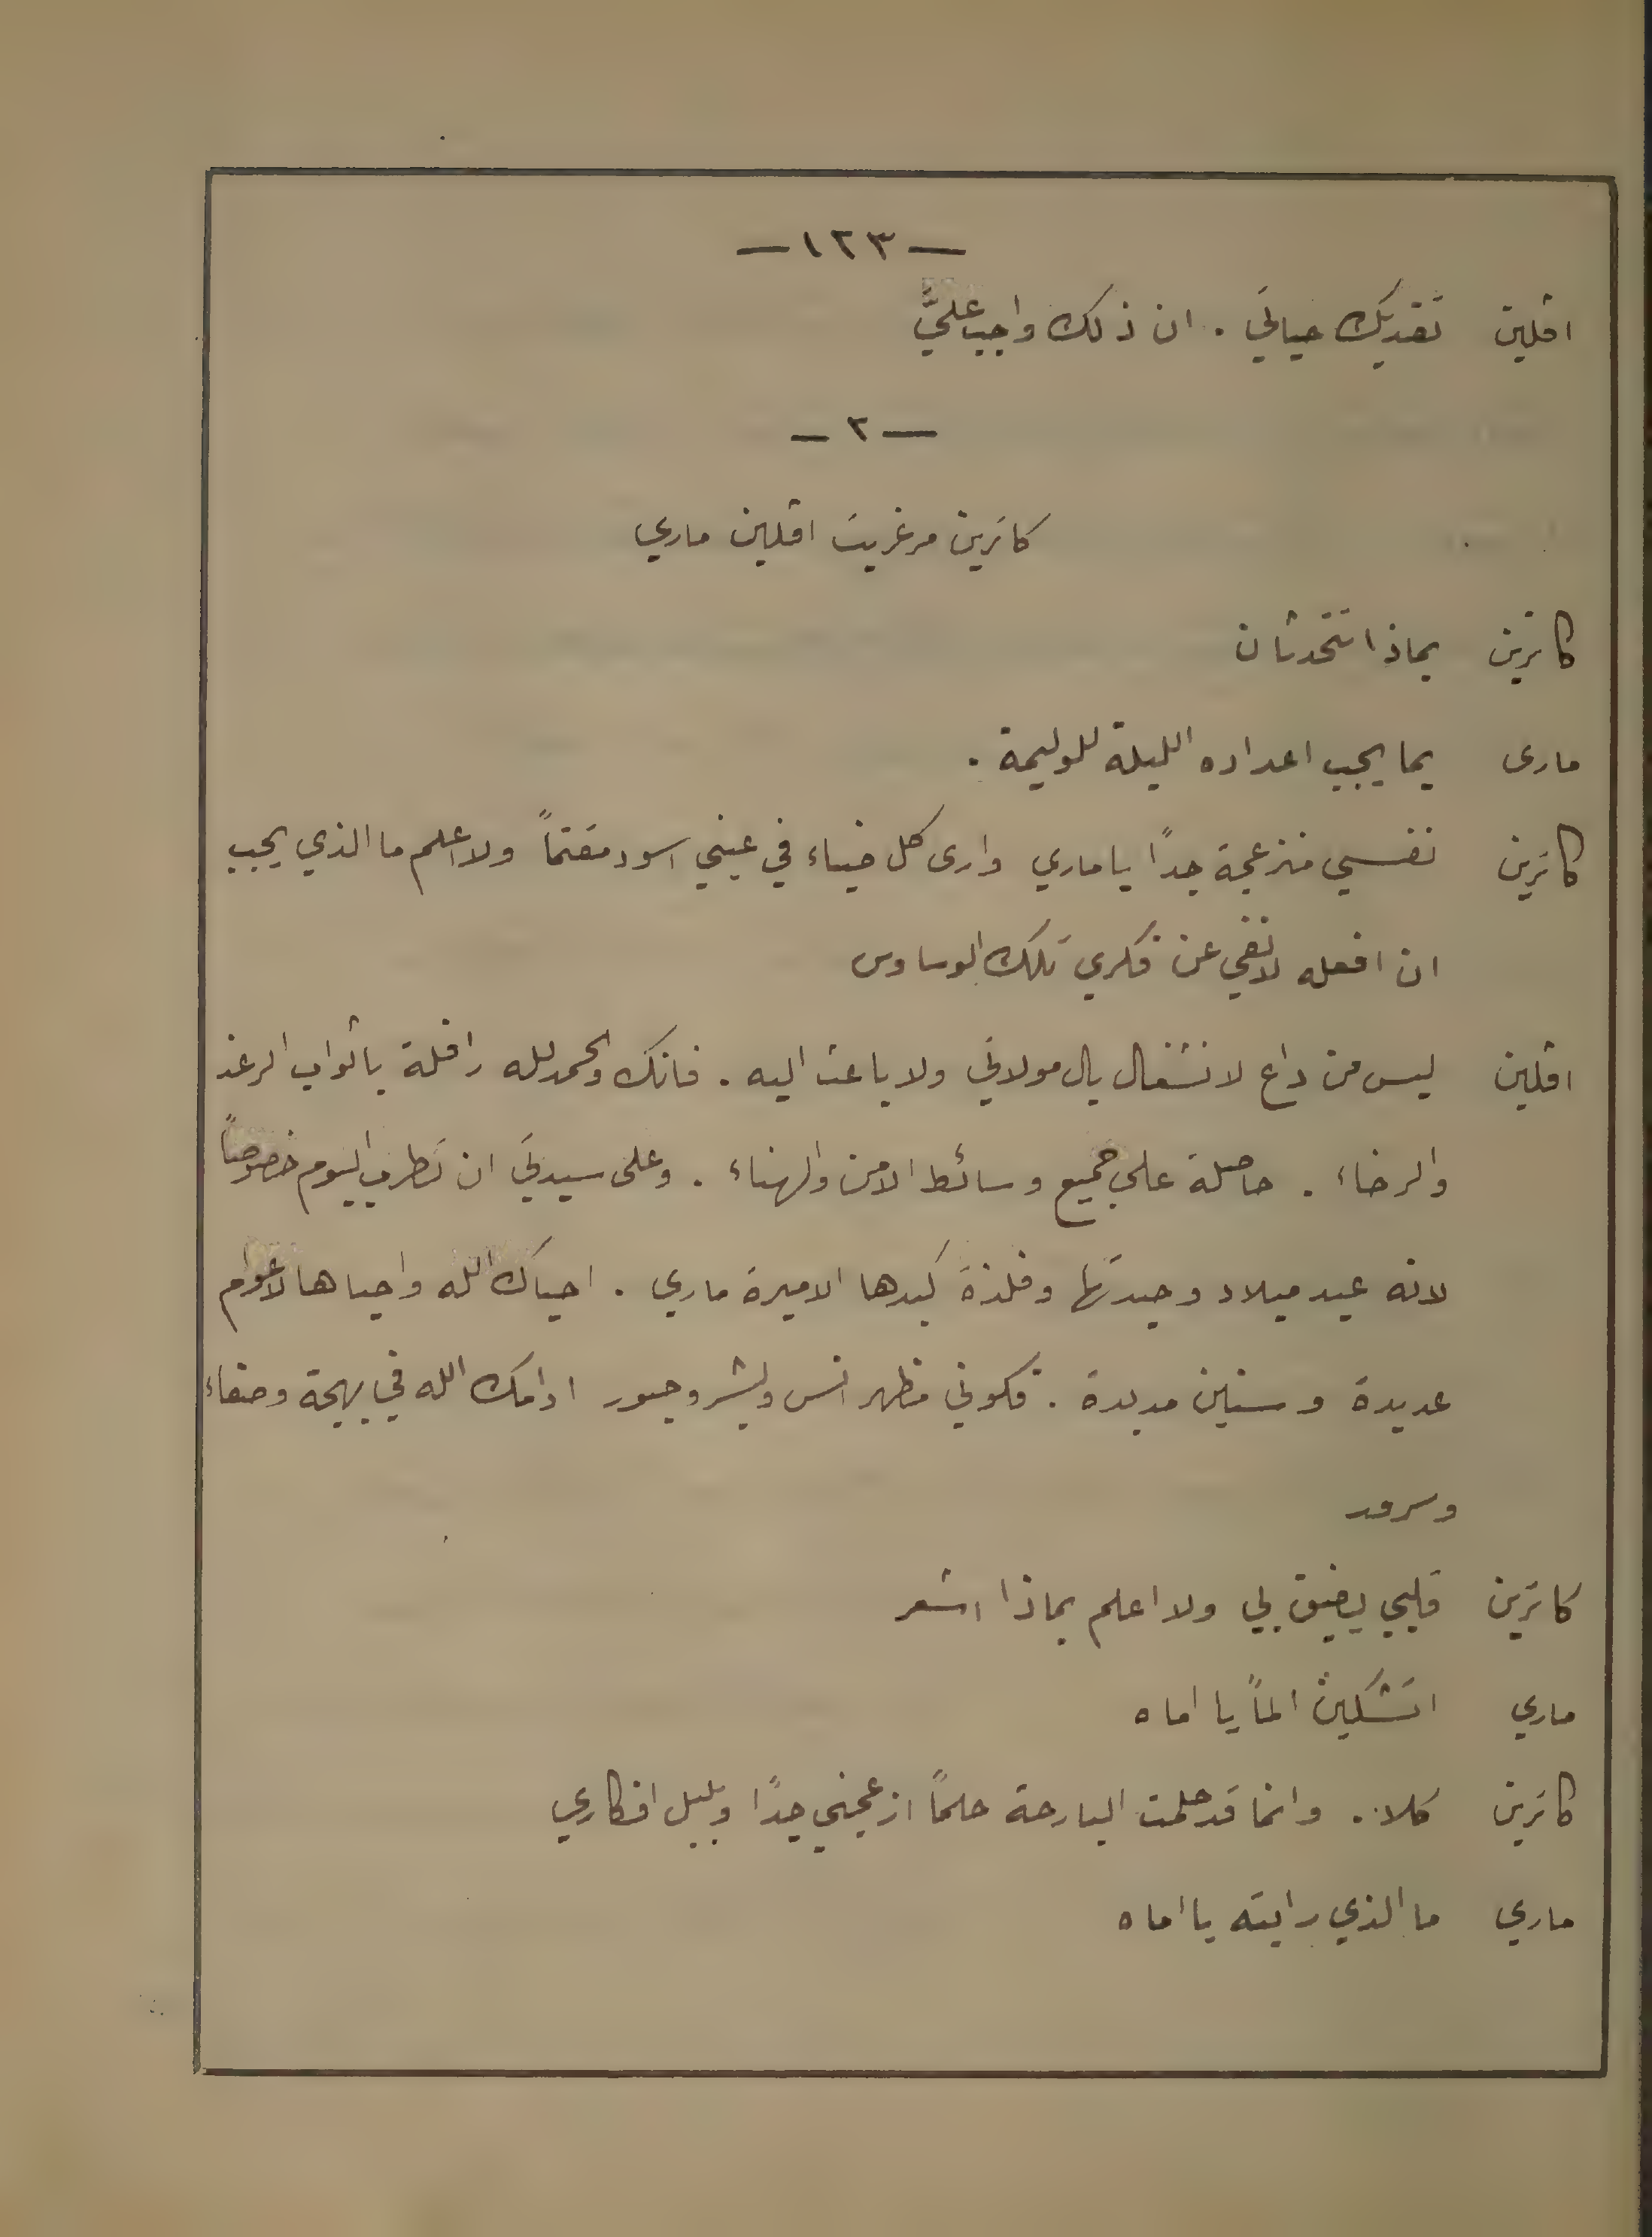 — ١٢٣ —
اڤلين تفديك حياتي . ان ذلك واجب عليَّ
— ٢ —
كاترين مرغريت اڤلين ماري
كاترين بماذا تتحدثان
مارى بما يجب اعداده الليلة للوليمة .
كاترين نفسي منزعجة جداً يا ماري وارى كل ضياء في عيني اسود مقتماً ولا اعلم ما الذي يجب
ان افعله لانفي عن فكري تلك الوساوس
اڤلين ليس من داع لانشغال بال مولاتي ولا باعث اليه . فانك والحمد لله رافلة باثواب الرغد
والرخاء . حاصلة على جميع وسائط الامن والهناء . وعلى سيدتي ان تطرب اليوم خصوصاً
لانه عيد ميلاد وحيدتها وفلذة كبدها الاميرة ماري . احياك الله واحياها لاعوام
عديدة وسنين مديدة . فكوني مظهر انس وبشر وحبور ادامك الله في بهجة وصفاء
وسرور
كاترين قلبي يضيق بي ولا اعلم بماذا اشعر
ماري اتشكين الماً يا اماه
كاترين كلا . وانما قد حلمت البارحة حلماً ازعجني جداً وبلبل افكاري
ماري ما الذي رايته يا اماه